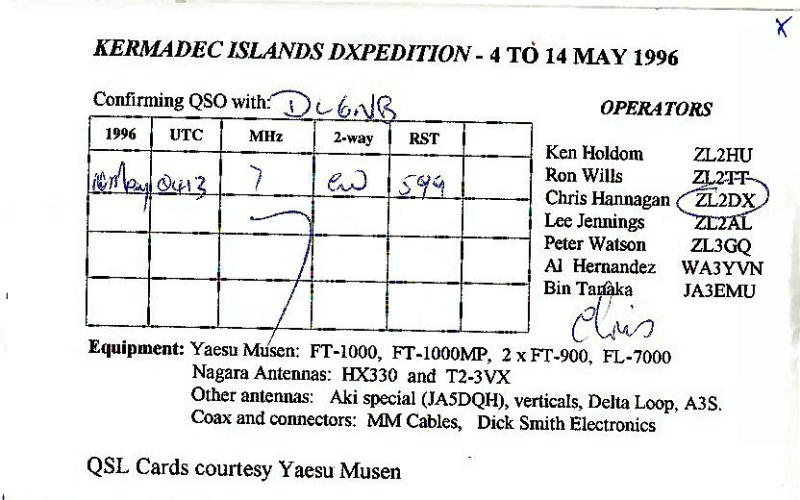 X
KERMADEC ISLANDS DXPEDITION - 4 TO 14 MAY 1996
Confirming QSO with: DL6NB
OPERATORS
1996 UTC MHz 2-way RST
10 May 0413 7 CW 599
Ken Holdom ZL2HU
Ron Wills ZL2TT
Chris Hannagan ZL2DX
Lee Jennings ZL2AL
Peter Watson ZL3GQ
Al Hernandez WA3YVN
Bin Tanaka JA3EMU
Chris
Equipment: Yaesu Musen: FT-1000, FT-1000MP, 2 x FT-900, FL-7000
Nagara Antennas: HX330 and T2-3VX
Other antennas: Aki special (JA5DQH), verticals, Delta Loop, A3S.
Coax and connectors: MM Cables, Dick Smith Electronics
QSL Cards courtesy Yaesu Musen